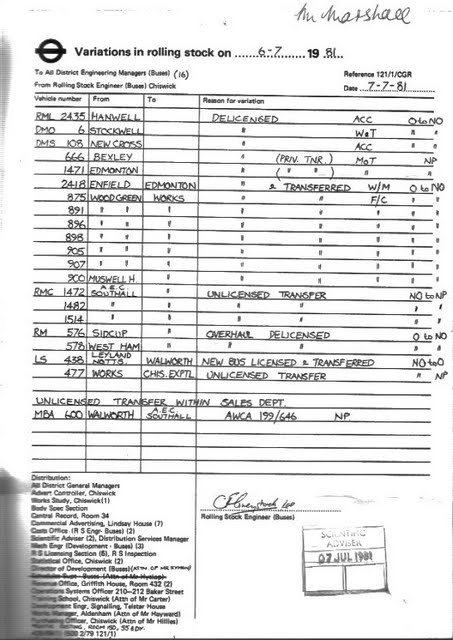 Mr Marshall
Variations in rolling stock on 6-7 1981.
To All District Engineering Managers (Buses) (16)
Reference 121/1/CGR
From Rolling Stock Engineer (Buses) Chiswick
Date 7-7-81
Vehicle number From To Reason for variation
RML 2435 HANWELL DELICENSED ACC O to NO
DMO 6 STOCKWELL " W&T "
DMS 108 NEW CROSS " ACC "
666 BEXLEY " (PRIV. TNR.) MoT NP
1471 EDMONTON " ( " " ) " "
2418 ENFIELD EDMONTON " & TRANSFERRED W/M O to NO
875 WOOD GREEN WORKS " " F/C "
891 " " " " " " "
896 " " " " " " "
898 " " " " " " "
905 " " " " " " "
907 " " " " " " "
900 MUSWELL H. " " " " "
RMC 1472 A.E.C. SOUTHALL " UNLICENSED TRANSFER NO to NP
1482 " " " " "
1514 " " " " "
RM 576 SIDCUP " OVERHAUL DELICENSED O to NO
578 WEST HAM " " " "
LS 438 LEYLAND NOTTS. WALWORTH NEW BUS LICENSED & TRANSFERRED NO to O
477 WORKS CHIS. EXPTL UNLICENSED TRANSFER " NP
UNLICENSED TRANSFER WITHIN SALES DEPT.
MBA 600 WALWORTH A.E.C. SOUTHALL AWCA 199/646 NP
Distribution:
All District General Managers
Advert Controller, Chiswick
Works Study, Chiswick (1)
Body Spec Section
Central Record, Room 34
Commercial Advertising, Lindsay House (7)
Costs Office (R S Engr- Buses) (2)
Scientific Adviser (2), Distribution Services Manager
Mech Engr (Development - Buses) (3)
R S Licensing Section (6), R S Inspection
Statistical Office, Chiswick (2)
Director of Development (Buses)
Schedules Supt - Buses (Attn of Mr Hyslop)
Revenue Office, Griffith House, Room 432 (2)
Operations Systems Officer 210–212 Baker Street
Training School, Chiswick (Attn of Mr Carter)
Development Engr, Signalling, Telstar House
Works Manager, Aldenham (Attn of Mr Hayward)
Purchasing Officer, Chiswick (Attn of Mr Hillies)
ROOM 150, 55 BDY.
2/79 121/1)
Rolling Stock Engineer (Buses)
SCIENTIFIC
ADVISER
07 JUL 1981